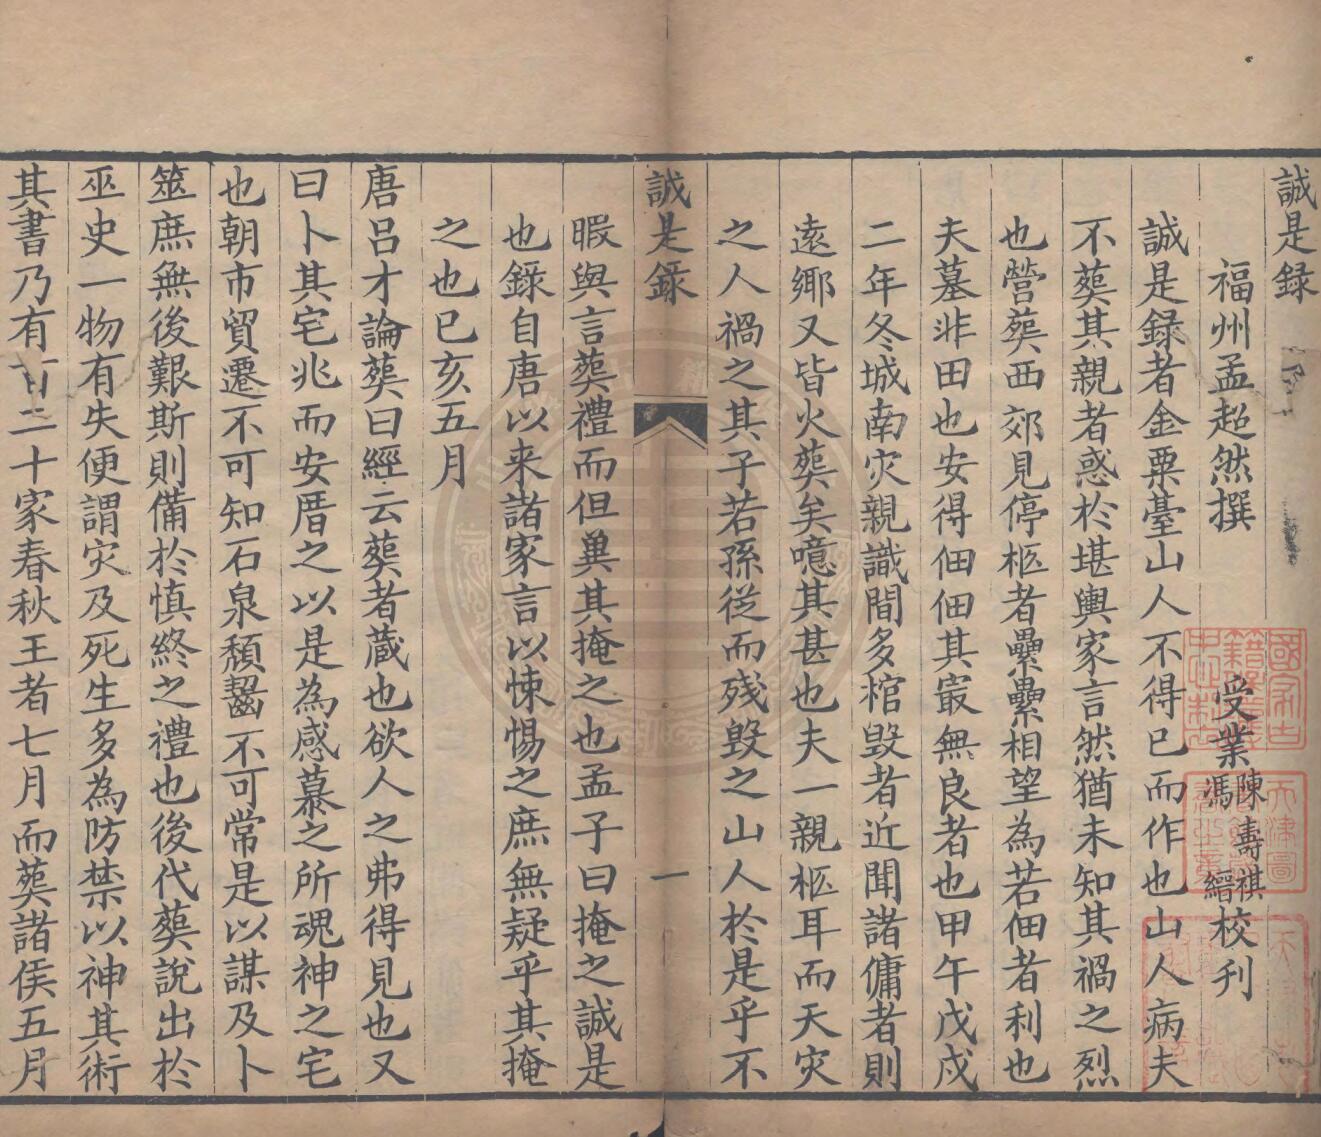 誠是録
福州孟超然撰 受業陳壽祺馮縉校刊
誠是録者金粟臺山人不得已而作也山人病夫
不葬其親者惑於堪輿家言然猶未知其禍之烈
也營葬西郊見停柩者纍纍相望為若佃者利也
夫墓非田也安得佃佃其冣無良者也甲午戊戌
二年冬城南灾親識間多棺毀者近聞諸傭者則
遠鄉又皆火葬矣噫其甚也夫一親柩耳而天灾
之人禍之其子若孫從而残毀之山人於是乎不
誠是録
一
暇與言葬禮而但冀其掩之也孟子曰掩之誠是
也錄自唐以来諸家言以悚惕之庶無疑乎其掩
之也已亥五月
唐呂才論葬曰經云葬者蔵也欲人之弗得見也又
曰卜其宅兆而安厝之以是為感慕之所魂神之宅
也朝市貿遷不可知石泉頹齧不可常是以謀及卜
筮庶無後艱斯則備於慎終之禮也後代葬說出於
巫史一物有失便謂灾及死生多為防禁以神其術
其書乃有百二十家春秋王者七月而葬諸侯五月